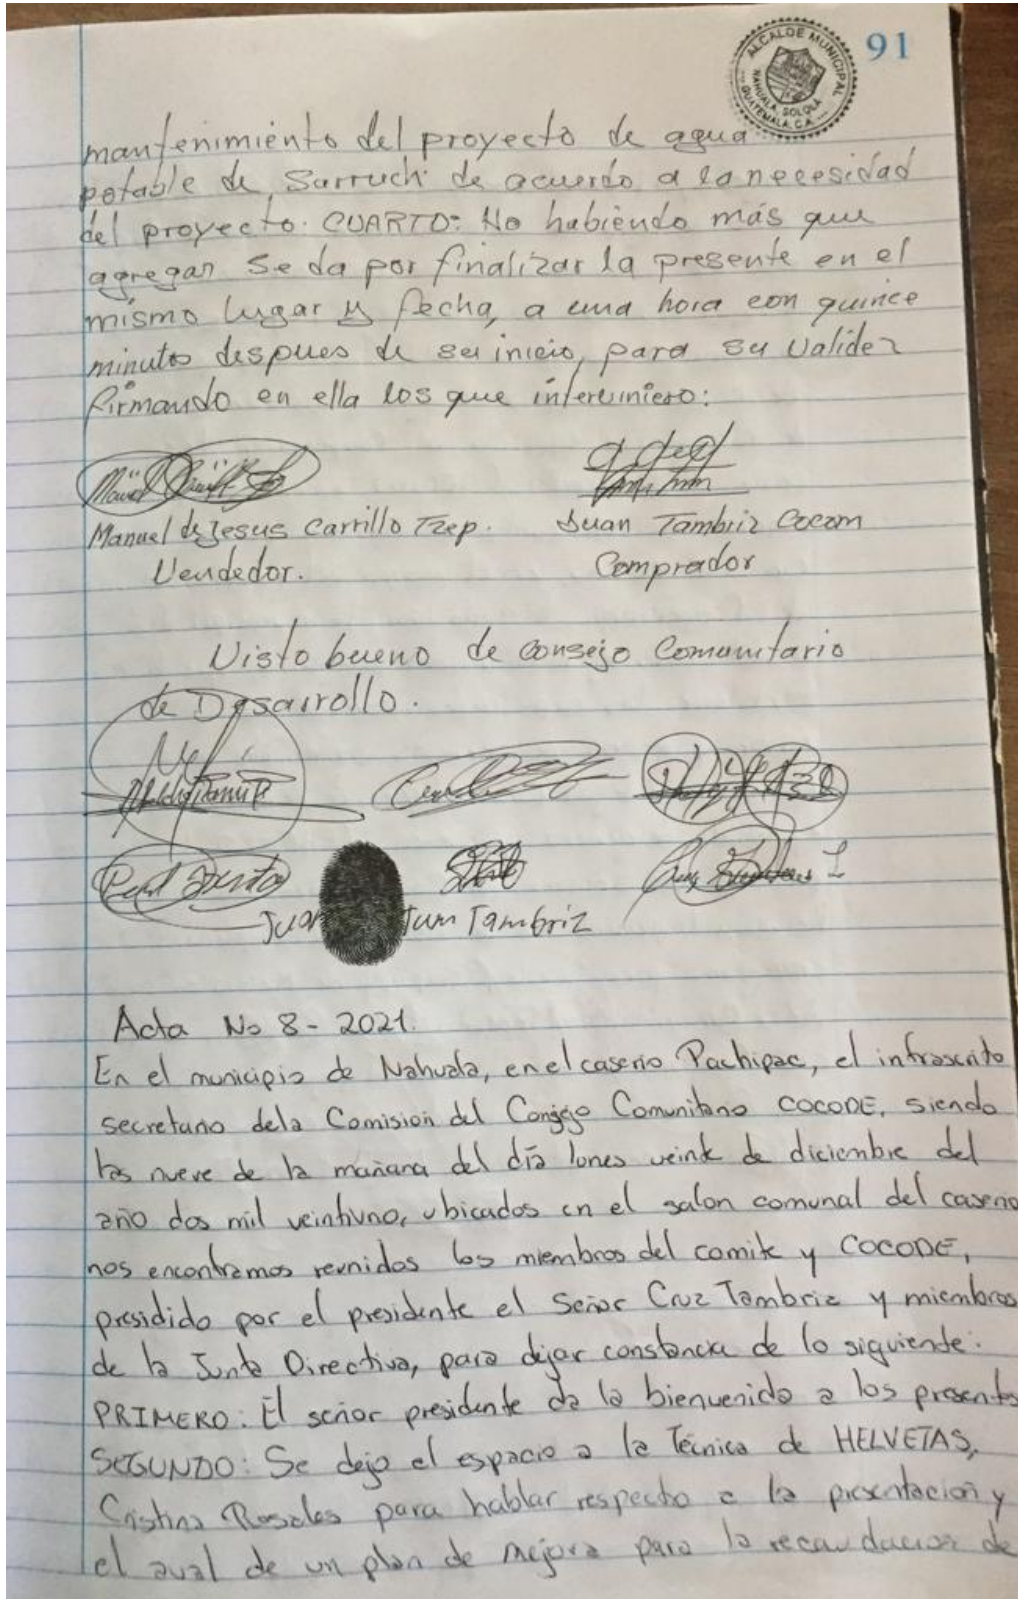 91
ALCALDE MUNICIPAL
NAHUALA, SOLOLA
GUATEMALA, C.A.
mantenimiento del proyecto de agua
potable de Sarruch de acuerdo a la necesidad
del proyecto. CUARTO: No habiendo más que
agregar se da por finalizar la presente en el
mismo lugar y fecha, a una hora con quince
minutos despues de su inicio, para su validez
firmando en ella los que interviniero:
Manuel de Jesus Carrillo Tzep. Juan Tambriz Cocom
Vendedor. Comprador
Visto bueno de consejo Comunitario
de Desarrollo.
Juan Tum Tambriz
Acta No 8 - 2021.
En el municipio de Nahuala, en el caserio Pachipac, el infrascrito
secretario dela Comisión del Consejo Comunitario COCODE, siendo
las nueve de la mañana del día lunes veinte de diciembre del
año dos mil veintiuno, ubicados en el salon comunal del caserio
nos encontramos reunidos los miembros del comite y COCODE,
presidido por el presidente el Señor Cruz Tambriz y miembros
de la Junta Directiva, para dejar constancia de lo siguiente:
PRIMERO: El señor presidente da la bienvenida a los presentes
SEGUNDO: Se dejo el espacio a la Técnica de HELVETAS,
Cristina Rosales para hablar respecto a la presentación y
el aval de un plan de mejora para la recaudacion de